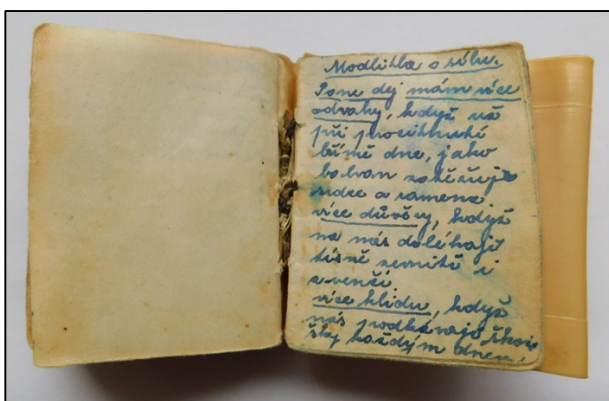 Modlitba o sílu.
Pane dej mám více
odvahy, když už
při procitnutí
břímě dne, jako
balvan zatěžuje
srdce a ramena
více důvěry, když
na nás doléhají
tísně zevnitř i
zvenčí.
více klidu, když
nás podkávají
každým dnem,